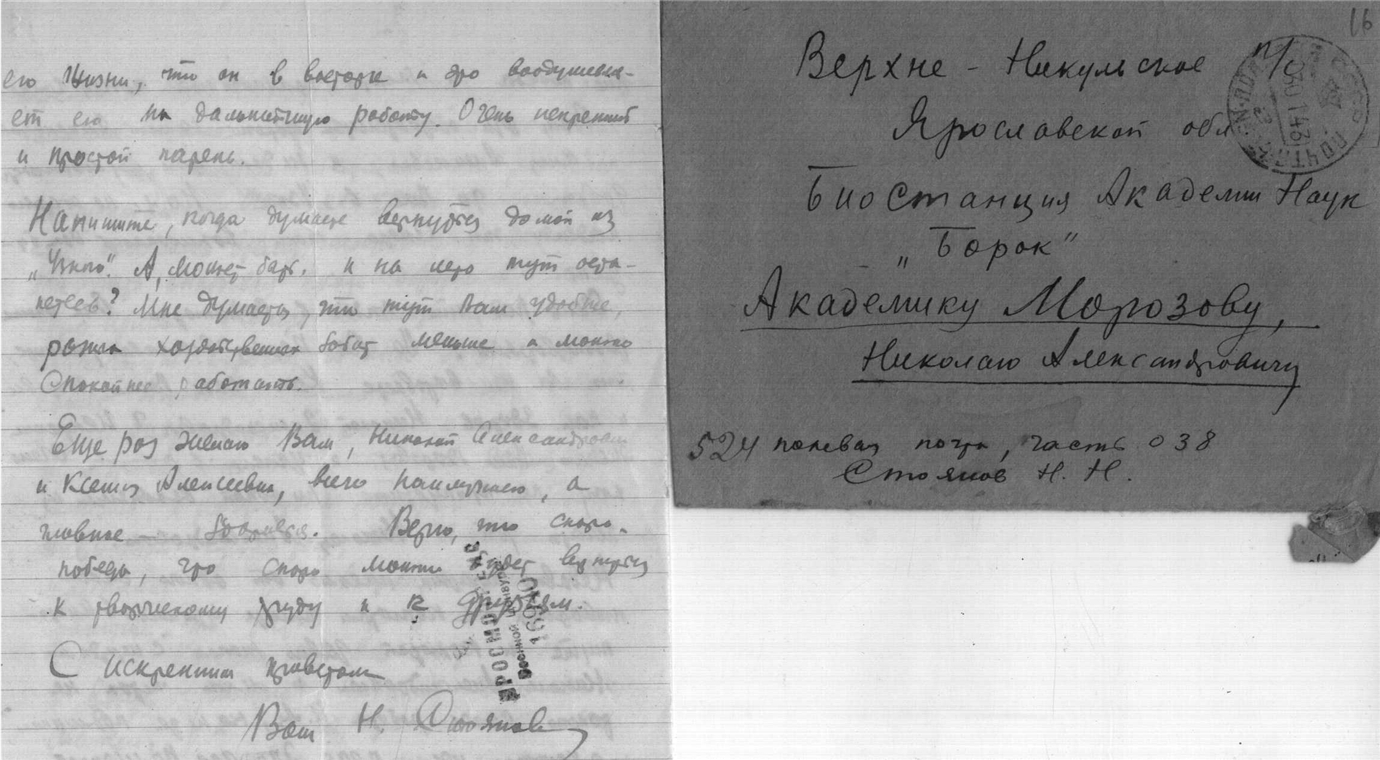 его жизни, что он в восторге и это воодушевля-
ет его на дальнейшую работу. Очень искренний
и простой парень.
Напишите, когда думаете вернуться домой из
"Узкого". А, может быть, и на лето тут оста-
нетесь? Мне думается, что тут Вам удобнее,
хозяйственных забот меньше и можно
спокойнее работать.
Еще раз желаю Вам, Николай Александрович
и Ксения Алексеевна, всего наилучшего, а
главное здоровья. Верю, что скоро
победа, что скоро можно будет вернуться
к творческому труду и к друзьям.
С искренним приветом
Ваш Н. Стоянов
ПРОСМОТРЕНО
Военной Цензурой
16940
16
Верхне-Никульское п/о
Ярославской обл
Биостанция Академии Наук
"Борок"
Академику Морозову,
Николаю Александровичу
524 полевая почта, часть 038
Стоянов Н. Н.